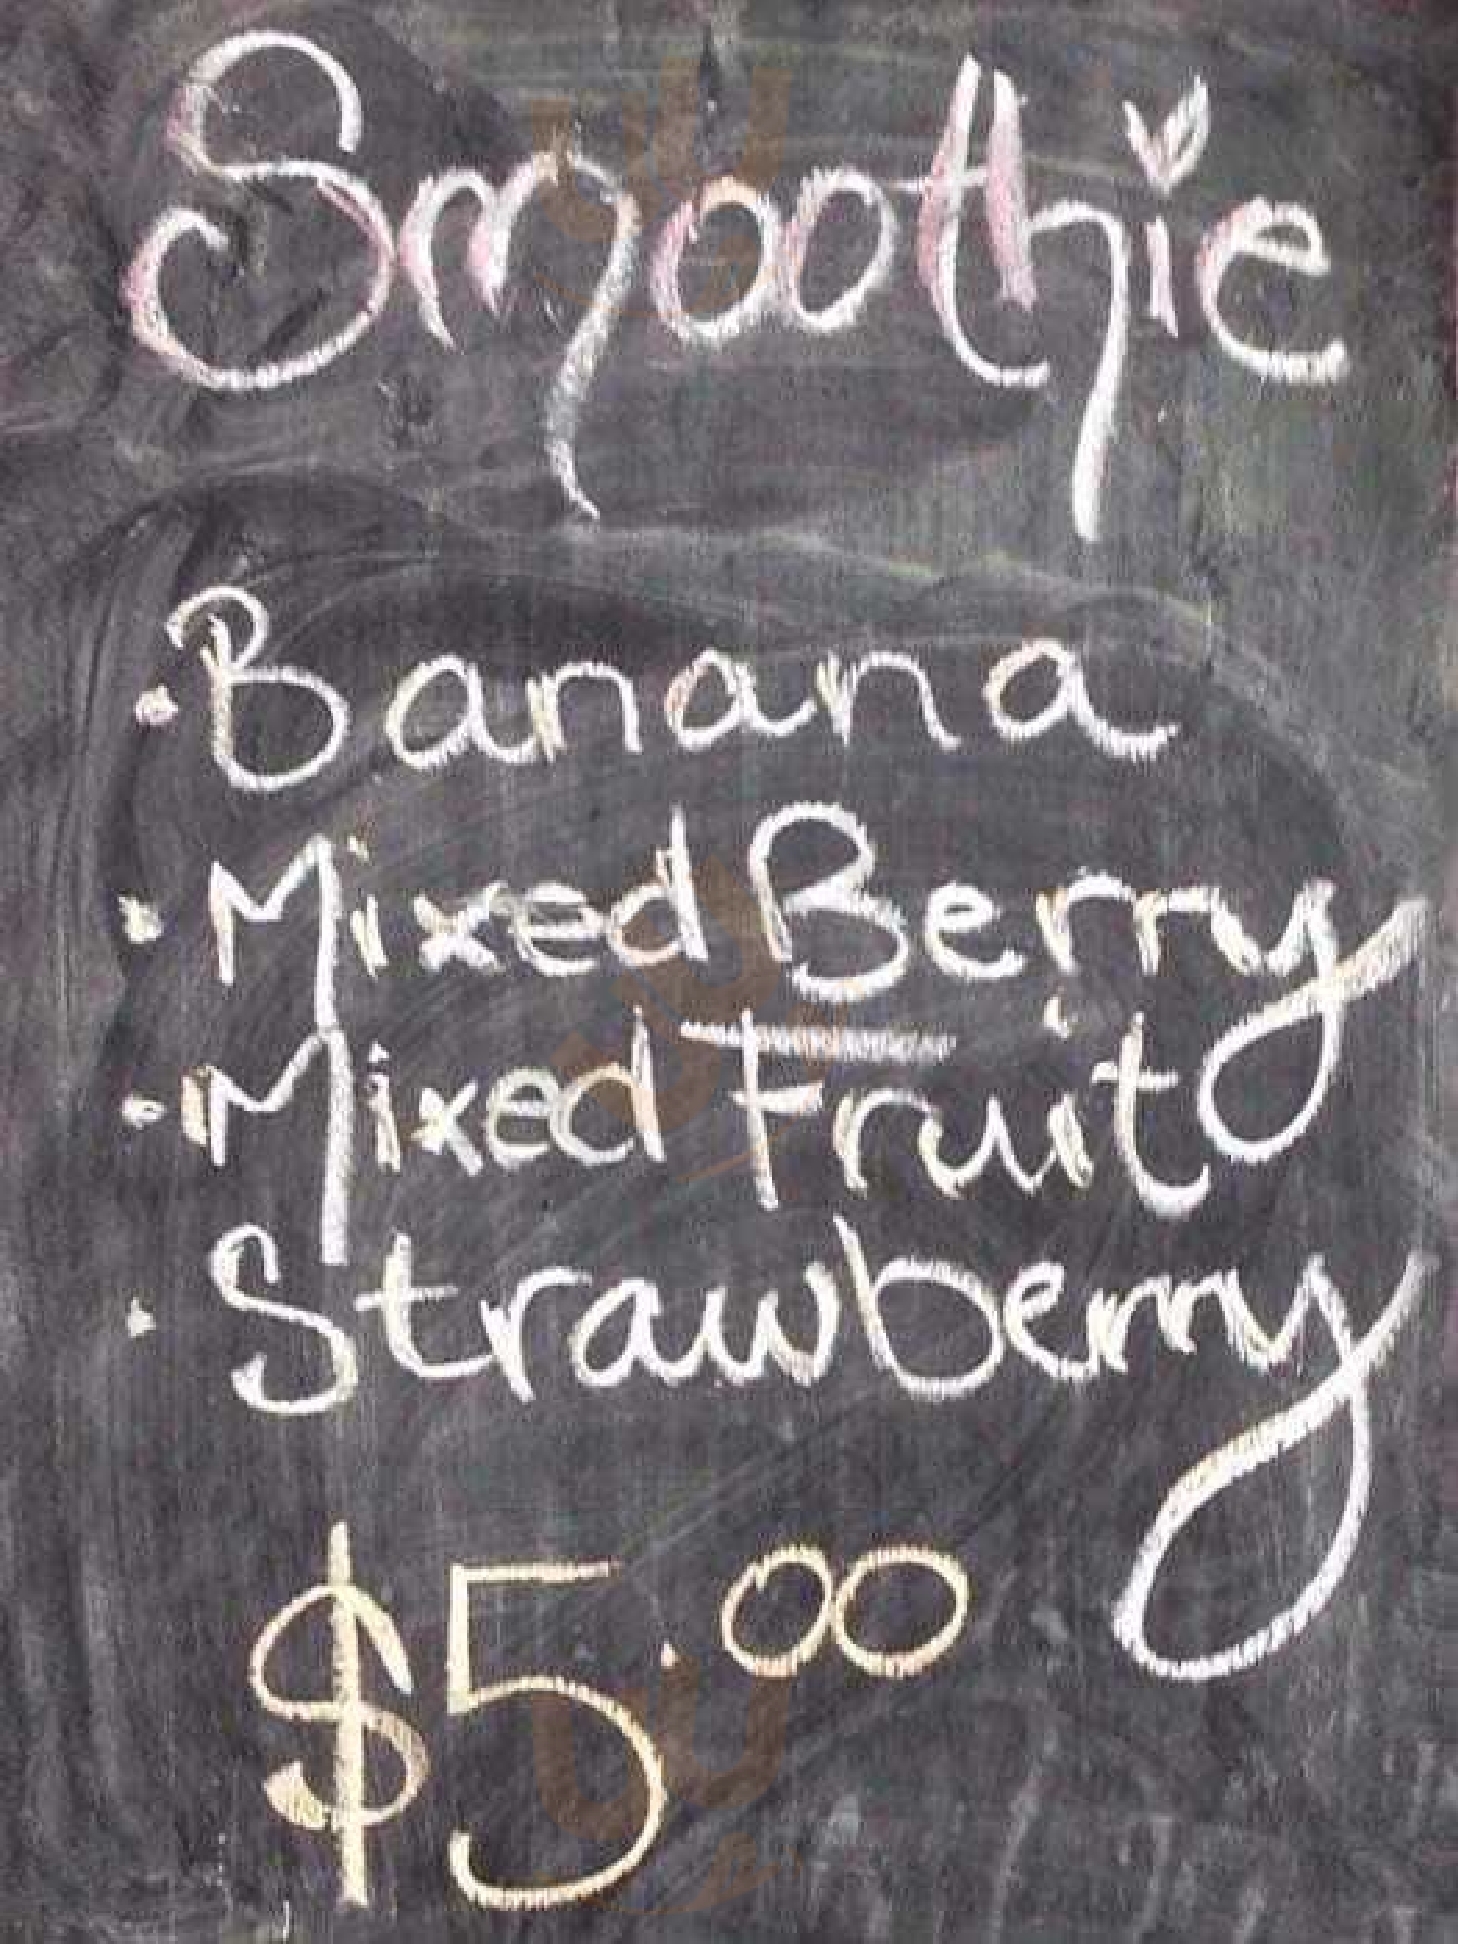 Smoothie
· Banana
· Mixed Berry
· Mixed Fruit
· Strawberry
$5.00